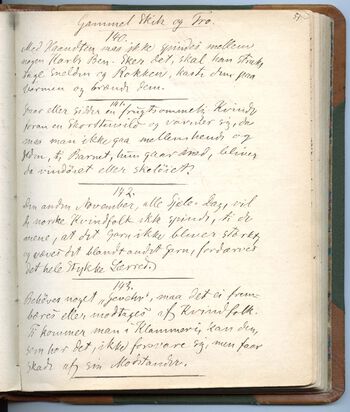 Gammel Skik og Tro.
140.
Med Haandten maa ikke spindes mellem
nogen Karls Ben. Skeer det, skal han strax
tage Snelden og Rokken, kaste dem paa
Varmen og brænde dem.
141.
Gaar eller sidder en frugtsommelig Kvinde
foran en Skorstensild og varmer sig, da
maa man ikke gaa mellem hende og
Ilden, ti Barnet, hun gaar med, bliver
da vindöiet eller skeløiet.
142.
Den anden November, alle Sjæle-Dag, vil
de norske Kvindfolk ikke spinde, ti de
mene, at det Garn ikke bliver stærkt,
og væves det blandt andet Garn, fordærves
det hele Stykke Lærred.
143.
Behøves noget "Gevehr", maa det ei frem-
bæres eller modtages af Kvindfolk.
Ti kommer man i Klammeri, kan den,
som har det, ikke forsvare sig, men faar
Skade af sin Modstander.